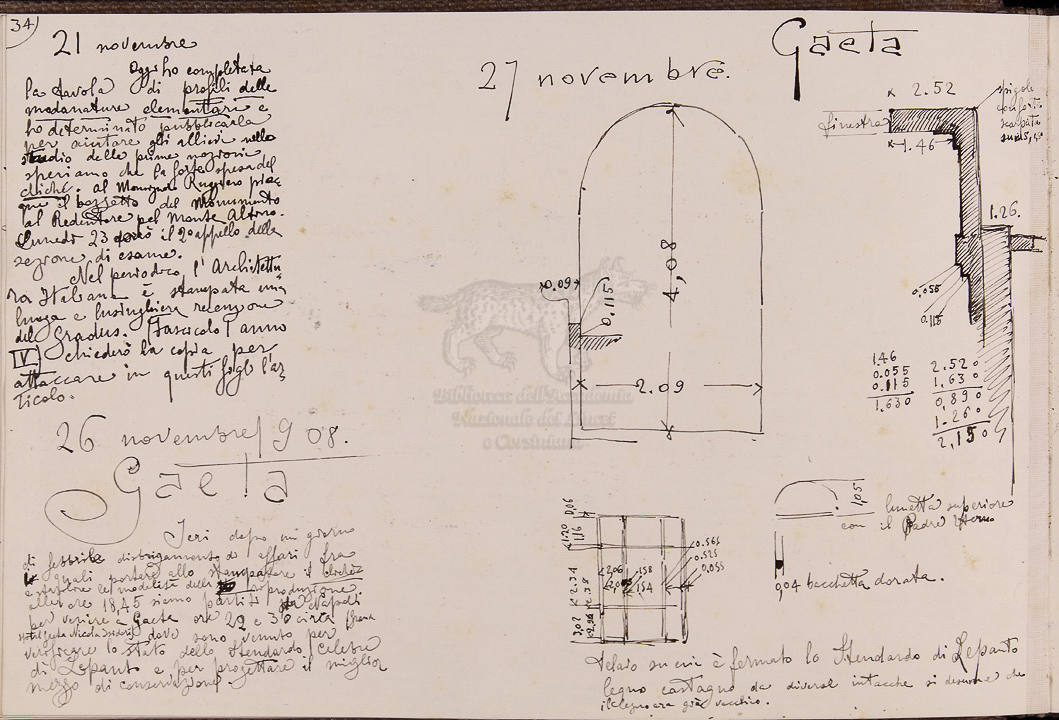 34
21 novembre
Oggi ho completata
la tavola di profili delle
modanature elementari e
ho determinato pubblicarla
per aiutare gli allievi nello
studio delle prime nozioni
speriamo che la forte spesa del
cliché. al Monsignor Ruggiero piac
que il bozzetto del Monumento
al Redentore pel Monte Altino.
Lunedì 23 darò il 2º appello della
sezione di esame.
Nel periodico l'Architettu
ra Italiana è stampata una
lunga e lusinghiera recensione
del Gradus. Fascicolo I anno
IV chiederò la copia per
attaccare in questi fogli l'ar
ticolo.
26 novembre 1908.
Gaeta
Ieri dopo un giorno
di febbrile disbrigamento di affari fra
i quali portare allo stampatore il cliché
e stabilire le modalità della riproduzione
alle ore 18,45 siamo partiti da Napoli
per venire a Gaeta ore 22 e 30 circa
verificare lo stato dello Stendardo celebre
di Lepanto e per progettare il miglior
mezzo di conservazione.
Gaeta
27 novembre.
4,08
0.09
0.115
2.09
finestra
2.52
1.46
spigolo
1.26.
0.055
0.115
1.46
0.055
0.115
1.630
2.520
1.630
0,890
1.260
2,150
1,05
lunetta superiore
con il Padre Eterno
0,04 bacchetta dorata.
0,06
1.20
1.16
2.34
2.38
3,02
2.96
2.06
1.58
1.54
0.565
0.525
0.055
Telaio su cui è fermato lo Stendardo di Lepanto
legno castagno da diverse intacche si desume che
il legno era già vecchio.
Biblioteca dell'Accademia
Nazionale dei Lincei
e Corsiniana